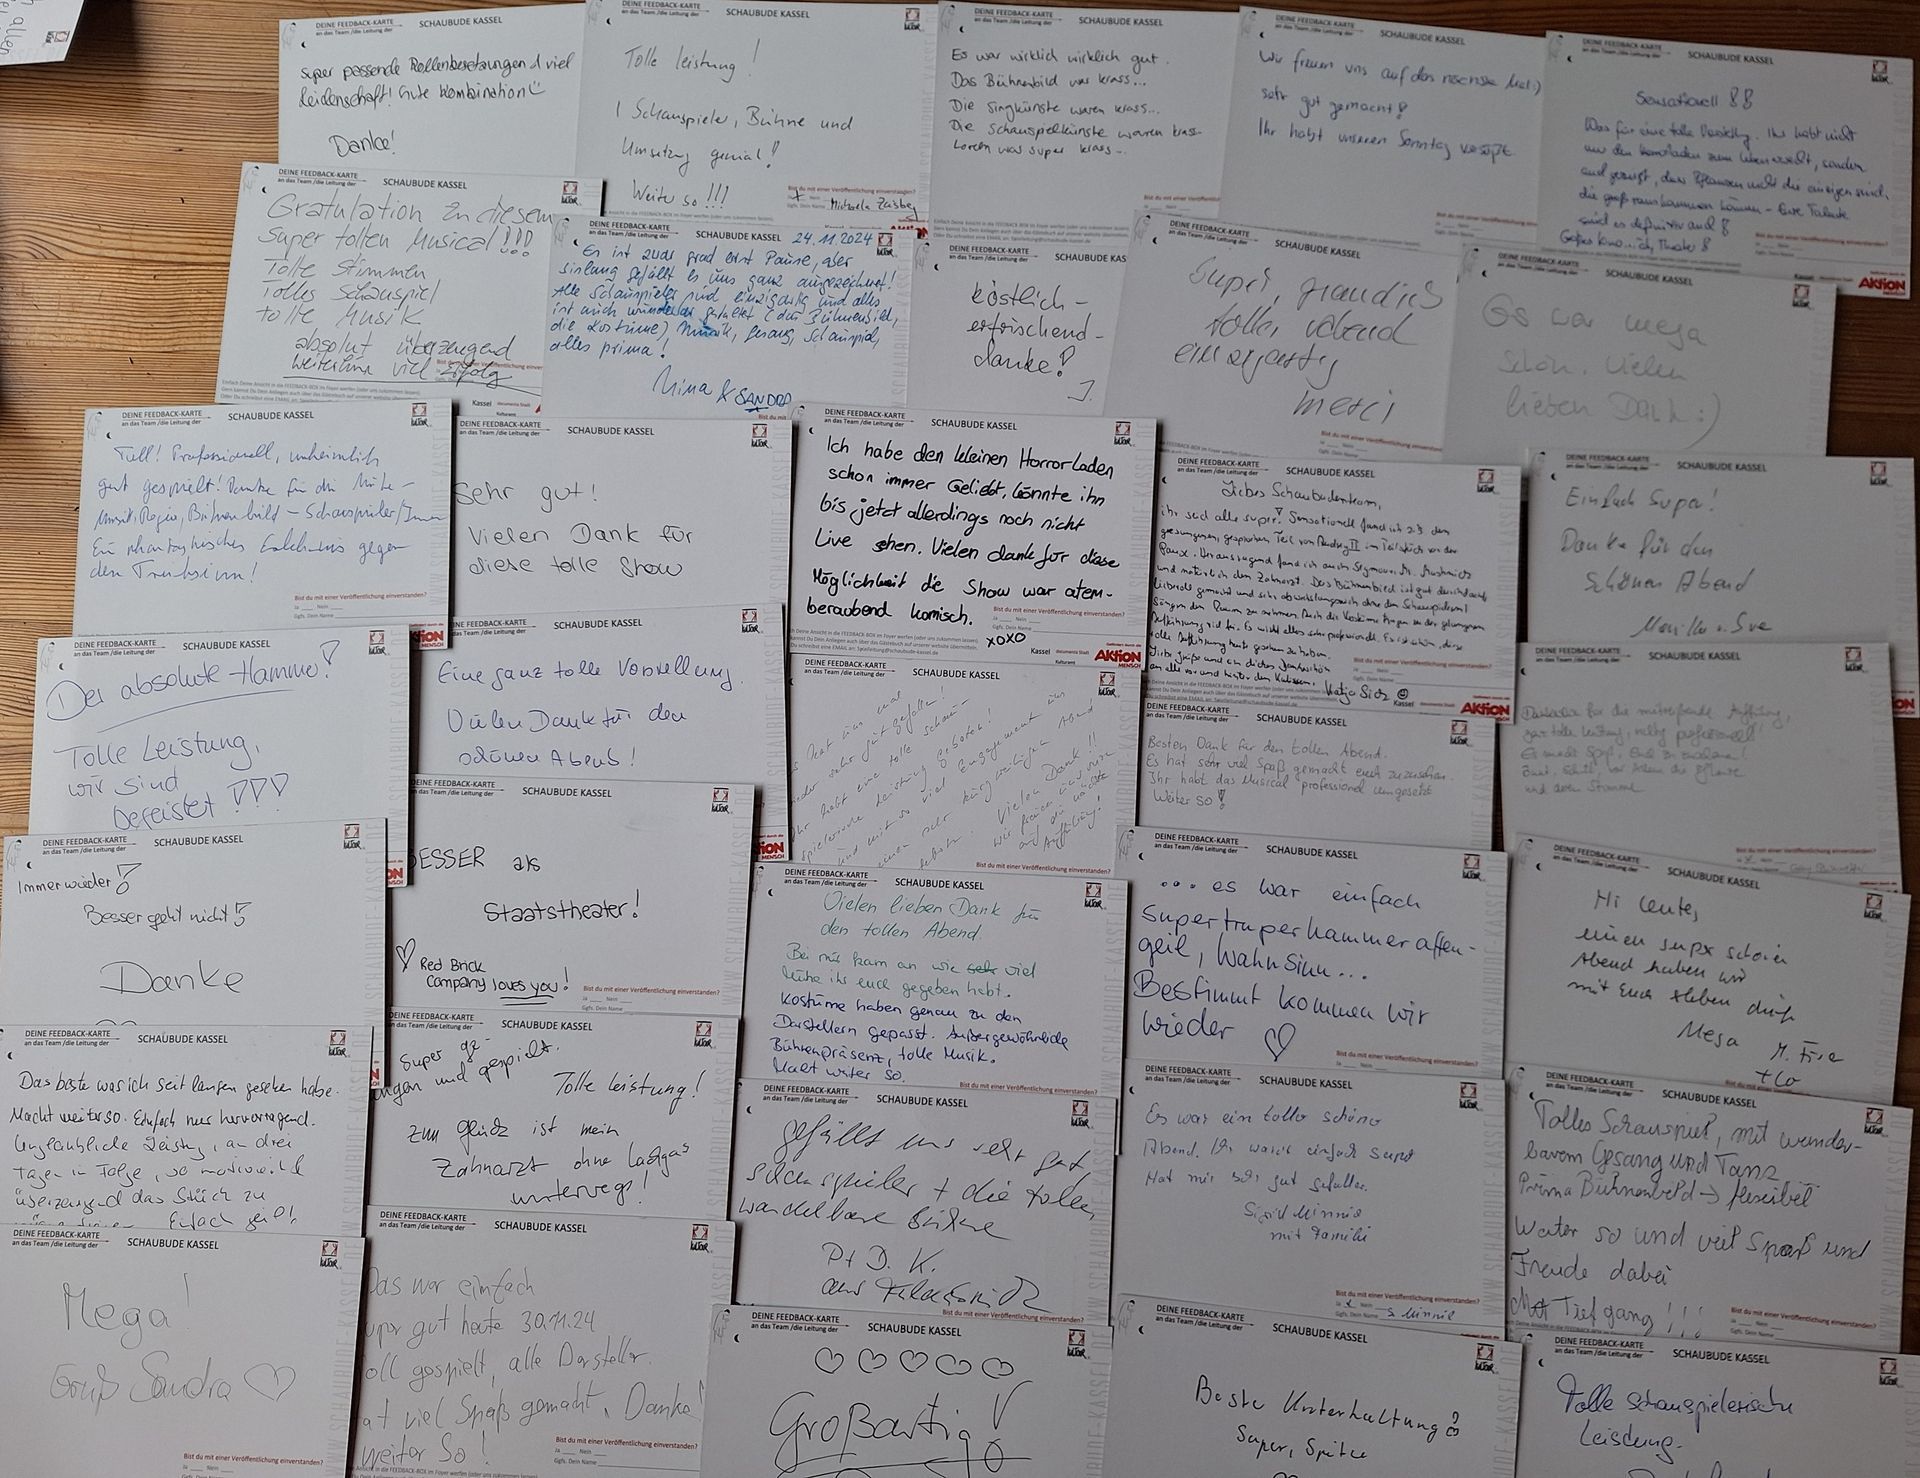 DEINE FEEDBACK-KARTE
an das Team /die Leitung der
SCHAUBUDE KASSEL
super passende Rollenbesetzungen & viel
Leidenschaft! Gute Kombination
Danke!
SCHAUBUDE KASSEL
Tolle leistung!
Schauspieler, Bühne und
Umsetzung genial!
Weiter so!!!
Bist du mit einer Veröffentlichung einverstanden?
Michaela
DEINE FEEDBACK-KARTE
an das Team /die Leitung der
SCHAUBUDE KASSEL
Es war wirklich wirklich gut.
Das Bühnenbild war krass...
Die Singkünste waren krass...
Die Schauspielkünste waren krass
war super krass
DEINE FEEDBACK-KARTE
an das Team /die Leitung der
SCHAUBUDE KASSEL
Wir freuen uns auf das nächste Mal :)
sehr gut gemacht!
Ihr habt unseren Sonntag versüßt
DEINE FEEDBACK-KARTE
an das Team /die Leitung der
SCHAUBUDE KASSEL
Sensationell !!
Was für eine tolle Ihr habt nicht
nur den zum Leben erweckt, sondern
auch gezeigt, dass Pflanzen nicht die einzigen sind,
die groß rauskommen können - Eure Talente
sind es definitiv auch!
AKTION
MENSCH
DEINE FEEDBACK-KARTE
an das Team /die Leitung der
SCHAUBUDE KASSEL
Gratulation zu diesem
super tollen Musical!!!
Tolle Stimmen
Tolles Schauspiel
tolle Musik
absolut überzeugend
weiterhin viel Erfolg
DEINE FEEDBACK-KARTE
an das Team /die Leitung der
SCHAUBUDE KASSEL
24.11.2024
Es ist zwar grad erst Pause, aber
bislang gefällt es uns ganz ausgezeichnet!
Alle Schauspieler sind einzigartig und alles
ist auch gestaltet (das Bühnenbild,
die Kostüme) Musik, Gesang, Schauspiel,
alles prima!
Nina & SANDRA
DEINE FEEDBACK-KARTE
an das Team /die Leitung der
köstlich -
erfrischend -
danke!
J.
DEINE FEEDBACK-KARTE
an das Team /die Leitung der
SCHAUBUDE KASSEL
Super, grandios
toller Abend
einzigartig
merci
DEINE FEEDBACK-KARTE
an das Team /die Leitung der
SCHAUBUDE KASSEL
Es war mega
schön. Vielen
lieben Dank :)
DEINE FEEDBACK-KARTE
an das Team /die Leitung der
SCHAUBUDE KASSEL
Toll! Professionell, unheimlich
gut gespielt! Danke für die Mühe -
Musik, Regie, Bühnenbild - Schauspieler/Innen
Ein phantastisches Erlebnis gegen
den Trübsinn!
Bist du mit einer Veröffentlichung einverstanden?
DEINE FEEDBACK-KARTE
an das Team /die Leitung der
SCHAUBUDE KASSEL
Sehr gut!
Vielen Dank für
diese tolle Show
DEINE FEEDBACK-KARTE
an das Team /die Leitung der
SCHAUBUDE KASSEL
Ich habe den kleinen Horrorladen
schon immer Geliebt, könnte ihn
bis jetzt allerdings noch nicht
Live sehen. Vielen dank für diese
Möglichkeit die Show war atem-
beraubend komisch.
xoxo
Bist du mit einer Veröffentlichung einverstanden?
AKTION
MENSCH
DEINE FEEDBACK-KARTE
an das Team /die Leitung der
SCHAUBUDE KASSEL
Liebes Schaubudenteam,
ihr seid alle super! Sensationell fand ich z.B. den
gesungenen, gesprochenen Teil von Audrey II im Teilstück vor der
Pause. Herausragend fand ich auch Seymour, Mr. Mushnick
und natürlich den Zahnarzt. Das Bühnenbild ist gut durchdacht
liebevoll gemacht und sehr abwechslungsreich ohne den Schauspielern/
Sängern den Raum zu nehmen. Auch die Kostüme tragen zu der gelungenen
Aufführung viel bei. Es wirkt alles sehr professionell. Es ist schön, diese
tolle Aufführung heute gesehen zu haben.
Liebe Grüße und ein dickes Dankeschön
an alle vor und hinter den Kulissen,
Katja
AKTION
MENSCH
DEINE FEEDBACK-KARTE
an das Team /die Leitung der
SCHAUBUDE KASSEL
Einfach Super!
Danke für den
schönen Abend
DEINE FEEDBACK-KARTE
an das Team /die Leitung der
SCHAUBUDE KASSEL
Der absolute Hammer!
Tolle Leistung,
wir sind
begeistert !!!
DEINE FEEDBACK-KARTE
an das Team /die Leitung der
SCHAUBUDE KASSEL
Eine ganz tolle Vorstellung.
Vielen Dank für den
schönen Abend!
hat uns mal
wieder sehr gut gefallen!
Ihr habt eine tolle schau-
spielerische Leistung geboten!
und mit so viel Engagement uns
einen sehr kurzweiligen Abend
Vielen Dank!!
wir freuen uns schon
auf die nächste
Aufführung!
Bist du mit einer Veröffentlichung einverstanden?
DEINE FEEDBACK-KARTE
an das Team /die Leitung der
SCHAUBUDE KASSEL
Besten Dank für den tollen Abend.
Es hat sehr viel Spaß gemacht euch zuzusehen.
Ihr habt das Musical professionell umgesetzt
Weiter so!
DEINE FEEDBACK-KARTE
an das Team /die Leitung der
SCHAUBUDE KASSEL
für die mitreißende Aufführung,
tolle Leistung, richtig professionell!
und deren Stimme
DEINE FEEDBACK-KARTE
an das Team /die Leitung der
SCHAUBUDE KASSEL
Immer wieder!
Besser geht nicht!
Danke
DEINE FEEDBACK-KARTE
an das Team /die Leitung der
SCHAUBUDE KASSEL
BESSER als
Staatstheater!
Red Brick
Company loves you!
Bist du mit einer Veröffentlichung einverstanden?
DEINE FEEDBACK-KARTE
an das Team /die Leitung der
SCHAUBUDE KASSEL
Vielen lieben Dank für
den tollen Abend.
Bei mir kam an wie sehr viel
Mühe ihr euch gegeben habt.
Kostüme haben genau zu den
Darstellern gepasst. Außergewöhnliche
Bühnenpräsenz, tolle Musik.
Macht weiter so.
Bist du mit einer Veröffentlichung einverstanden?
DEINE FEEDBACK-KARTE
an das Team /die Leitung der
SCHAUBUDE KASSEL
... es war einfach
supertruperhammeraffen-
geil, Wahnsinn...
Bestimmt kommen wir
wieder ♡
Bist du mit einer Veröffentlichung einverstanden?
DEINE FEEDBACK-KARTE
an das Team /die Leitung der
SCHAUBUDE KASSEL
Hi Leute,
einen super schönen
Abend haben wir
mit Euch erleben dürfen
Mega
+ Co
DEINE FEEDBACK-KARTE
an das Team /die Leitung der
SCHAUBUDE KASSEL
Das beste was ich seit langen gesehen habe.
Macht weiter so. Einfach nur hervorragend.
Unglaubliche Leistung, an drei
Tagen in Folge, so motivierend
überzeugend das Stück zu
Einfach geil!
DEINE FEEDBACK-KARTE
an das Team /die Leitung der
SCHAUBUDE KASSEL
Super ge-
ungen und gespielt.
Tolle leistung!
Zum Glück ist mein
Zahnarzt ohne Lachgas
unterwegs!
DEINE FEEDBACK-KARTE
an das Team /die Leitung der
SCHAUBUDE KASSEL
gefällt uns sehr gut,
schauspieler + die tolle,
wandelbare Bühne
P + D. K.
aus
Bist du mit einer Veröffentlichung einverstanden?
DEINE FEEDBACK-KARTE
an das Team /die Leitung der
SCHAUBUDE KASSEL
Es war ein toller schöner
Abend. Ihr wart einfach super
Hat mir sehr gut gefallen.
Sigrid Minnie
mit Familie
Bist du mit einer Veröffentlichung einverstanden?
S. Minnie
DEINE FEEDBACK-KARTE
an das Team /die Leitung der
SCHAUBUDE KASSEL
Tolles Schauspiel, mit wunder-
barem Gesang und Tanz
Prima Bühnenbild → flexibel
Weiter so und viel Spaß und
Freude dabei
Mit Tiefgang!!!
Bist du mit einer Veröffentlichung einverstanden?
DEINE FEEDBACK-KARTE
an das Team /die Leitung der
SCHAUBUDE KASSEL
Mega!
Gruß Sandra ♡
Bist du mit einer Veröffentlichung einverstanden?
DEINE FEEDBACK-KARTE
an das Team /die Leitung der
SCHAUBUDE KASSEL
Das war einfach
super gut heute 30.11.24
toll gespielt, alle Darsteller.
hat viel Spaß gemacht, Danke!
weiter so!
Bist du mit einer Veröffentlichung einverstanden?
DEINE FEEDBACK-KARTE
an das Team /die Leitung der
SCHAUBUDE KASSEL
♡♡♡♡♡
Großartig!
DEINE FEEDBACK-KARTE
an das Team /die Leitung der
SCHAUBUDE KASSEL
Beste Unterhaltung!
Super, Spitze
DEINE FEEDBACK-KARTE
an das Team /die Leitung der
SCHAUBUDE KASSEL
Tolle schauspielerische
Leistung.